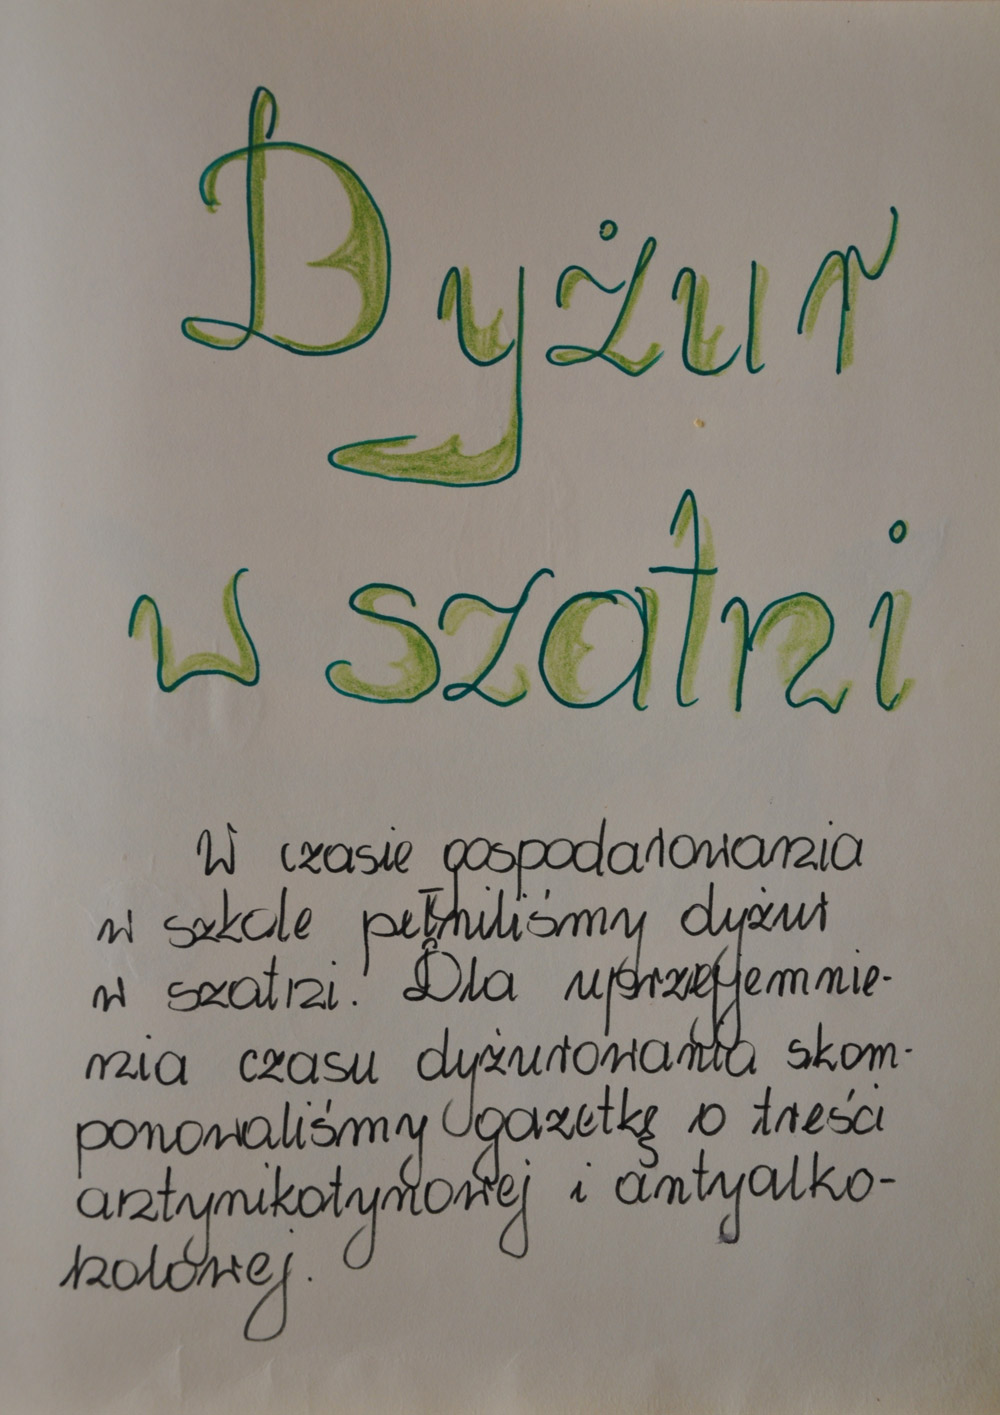 Dyżur
w szatni
W czasie gospodarowania
w szkole pełniliśmy dyżur
w szatni. Dla uprzyjemnie-
nia czasu dyżurowania skom-
ponowaliśmy gazetkę o treści
antynikotynowej i antyalko-
holowej.